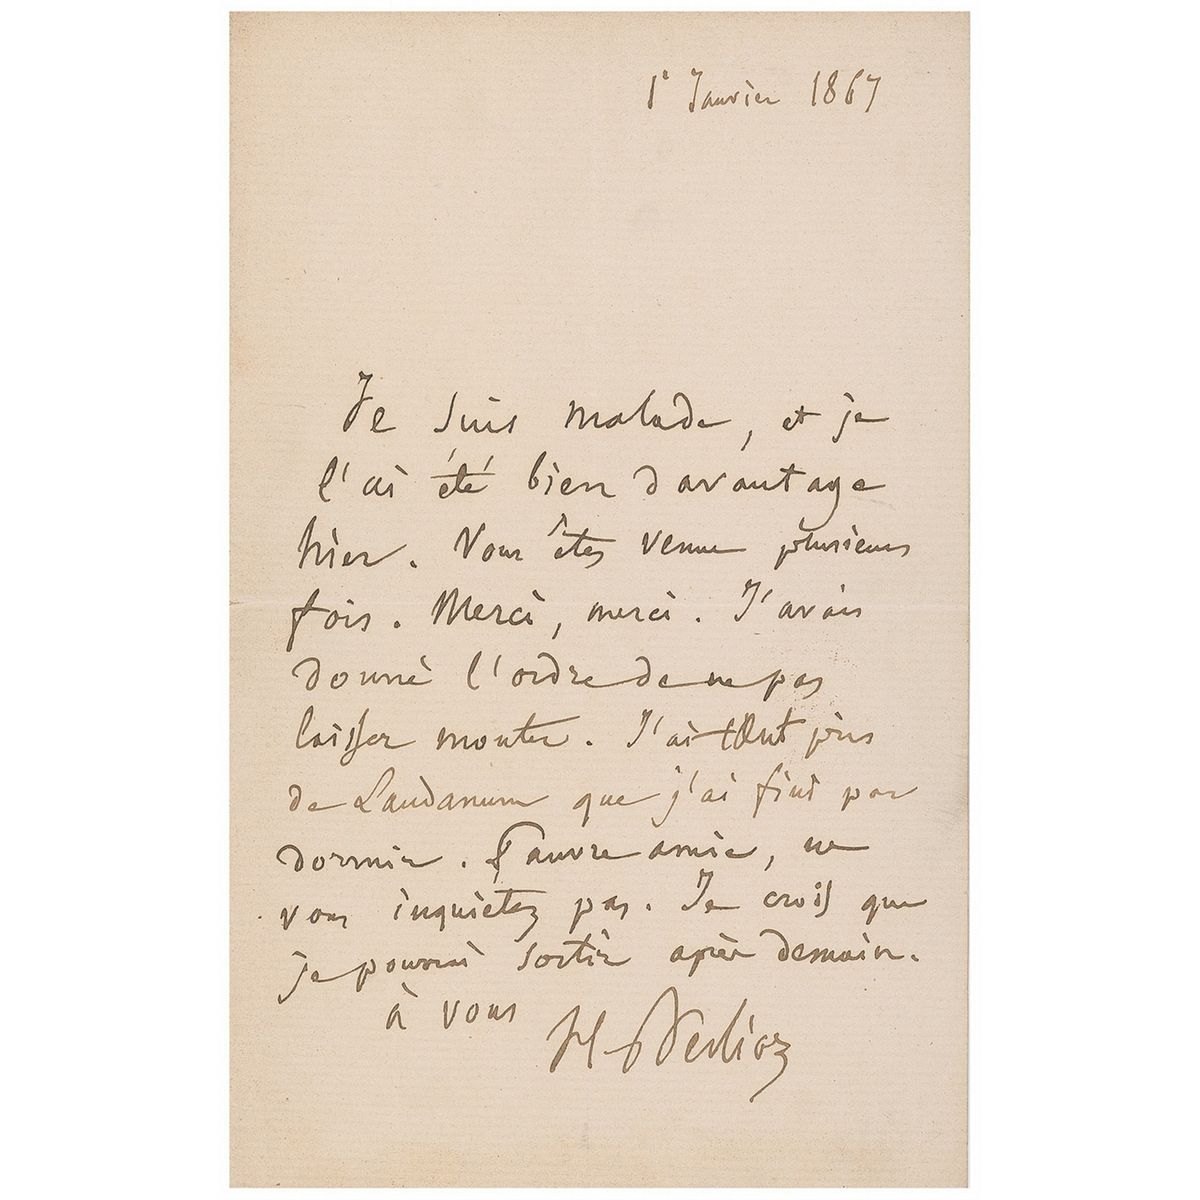 1er Janvier 1867
Je suis malade, et je
l'ai été bien davantage
hier. Vous êtes venue plusieurs
fois. Merci, merci. J'avais
donné l'ordre de ne pas
laisser monter. J'ai tant pris
de Laudanum que j'ai fini par
dormir. Pauvre amie, ne
vous inquiétez pas. Je crois que
je pourrai sortir après demain.
à vous
H. Berlioz